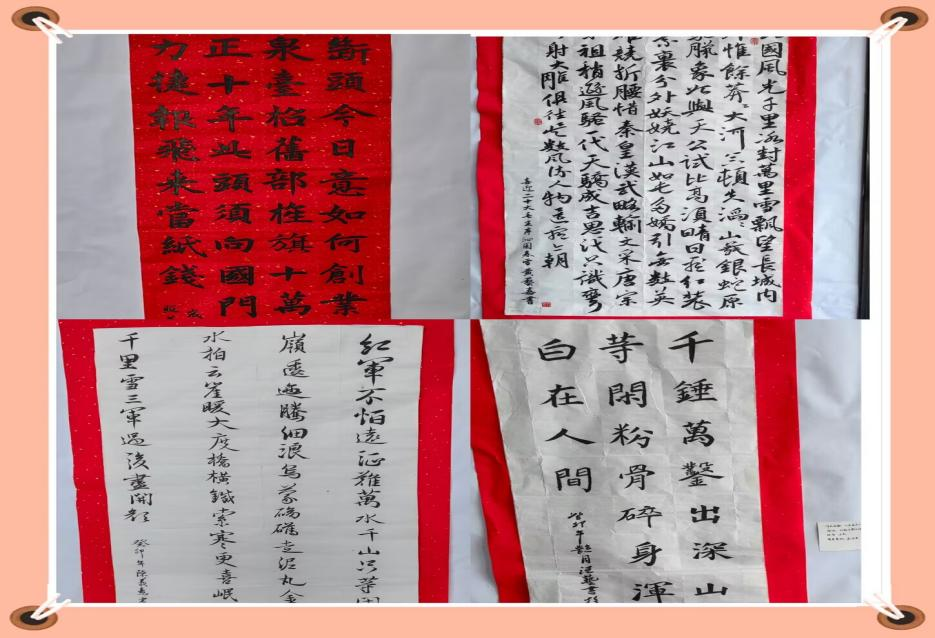 斷頭今日意如何創業
泉臺招舊部旌旗十萬
正十年此頭須向國門
力捷報飛来當紙錢
國風光千里冰封萬里雪飄望長城内
惟餘莽々大河上下頓失滔々山舞銀蛇原
蠟象欲與天公試比高須晴日看紅裝
素裹分外妖嬈江山如此多嬌引無數英
競折腰惜秦皇漢武略輸文采唐宗
祖稍遜風騷一代天驕成吉思汗只識彎
射大雕俱往矣數風流人物還看今朝
喜迎二十大毛主席沁園春雪
紅軍不怕遠征難萬水千山只等閑
嶺逶迤騰細浪烏蒙磅礴走泥丸金
水拍云崖暖大度橋橫鐵索寒更喜岷
千里雪三軍過後盡開顏
癸卯年
千錘萬鑿出深山
等閑粉骨碎身渾
白在人間
癸卯年